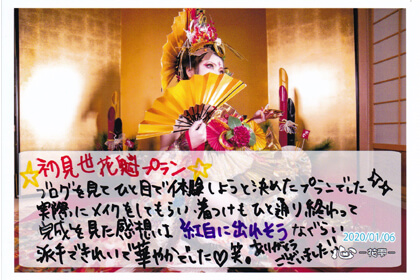 初見世花魁プラン
ブログを見てひと目で体験しようと決めたプランでした
実際にメイクをしてもらい着つけもひと通り終わって
完成を見た感想は紅白に出れそうなぐらい
派手できれいで華やかでした♡笑。ありがとうございました!!
2020/01/06
心-花雫-